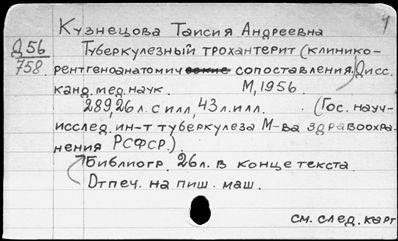 Кузнецова Таисия Андреевна
1
Д56
758
Туберкулезный трохантерит (клинико-
рентгеноанатомические сопоставления. Дисс.
канд. мед. наук. М, 1956.
289, 26 л. с илл, 43 л. илл. (Гос. науч-
исслед. ин-т туберкулеза М-ва здравоохра-
нения РСФСР.)
Библиогр. 26 л. в конце текста.
Отпеч. на пиш. маш.
см. след. карт